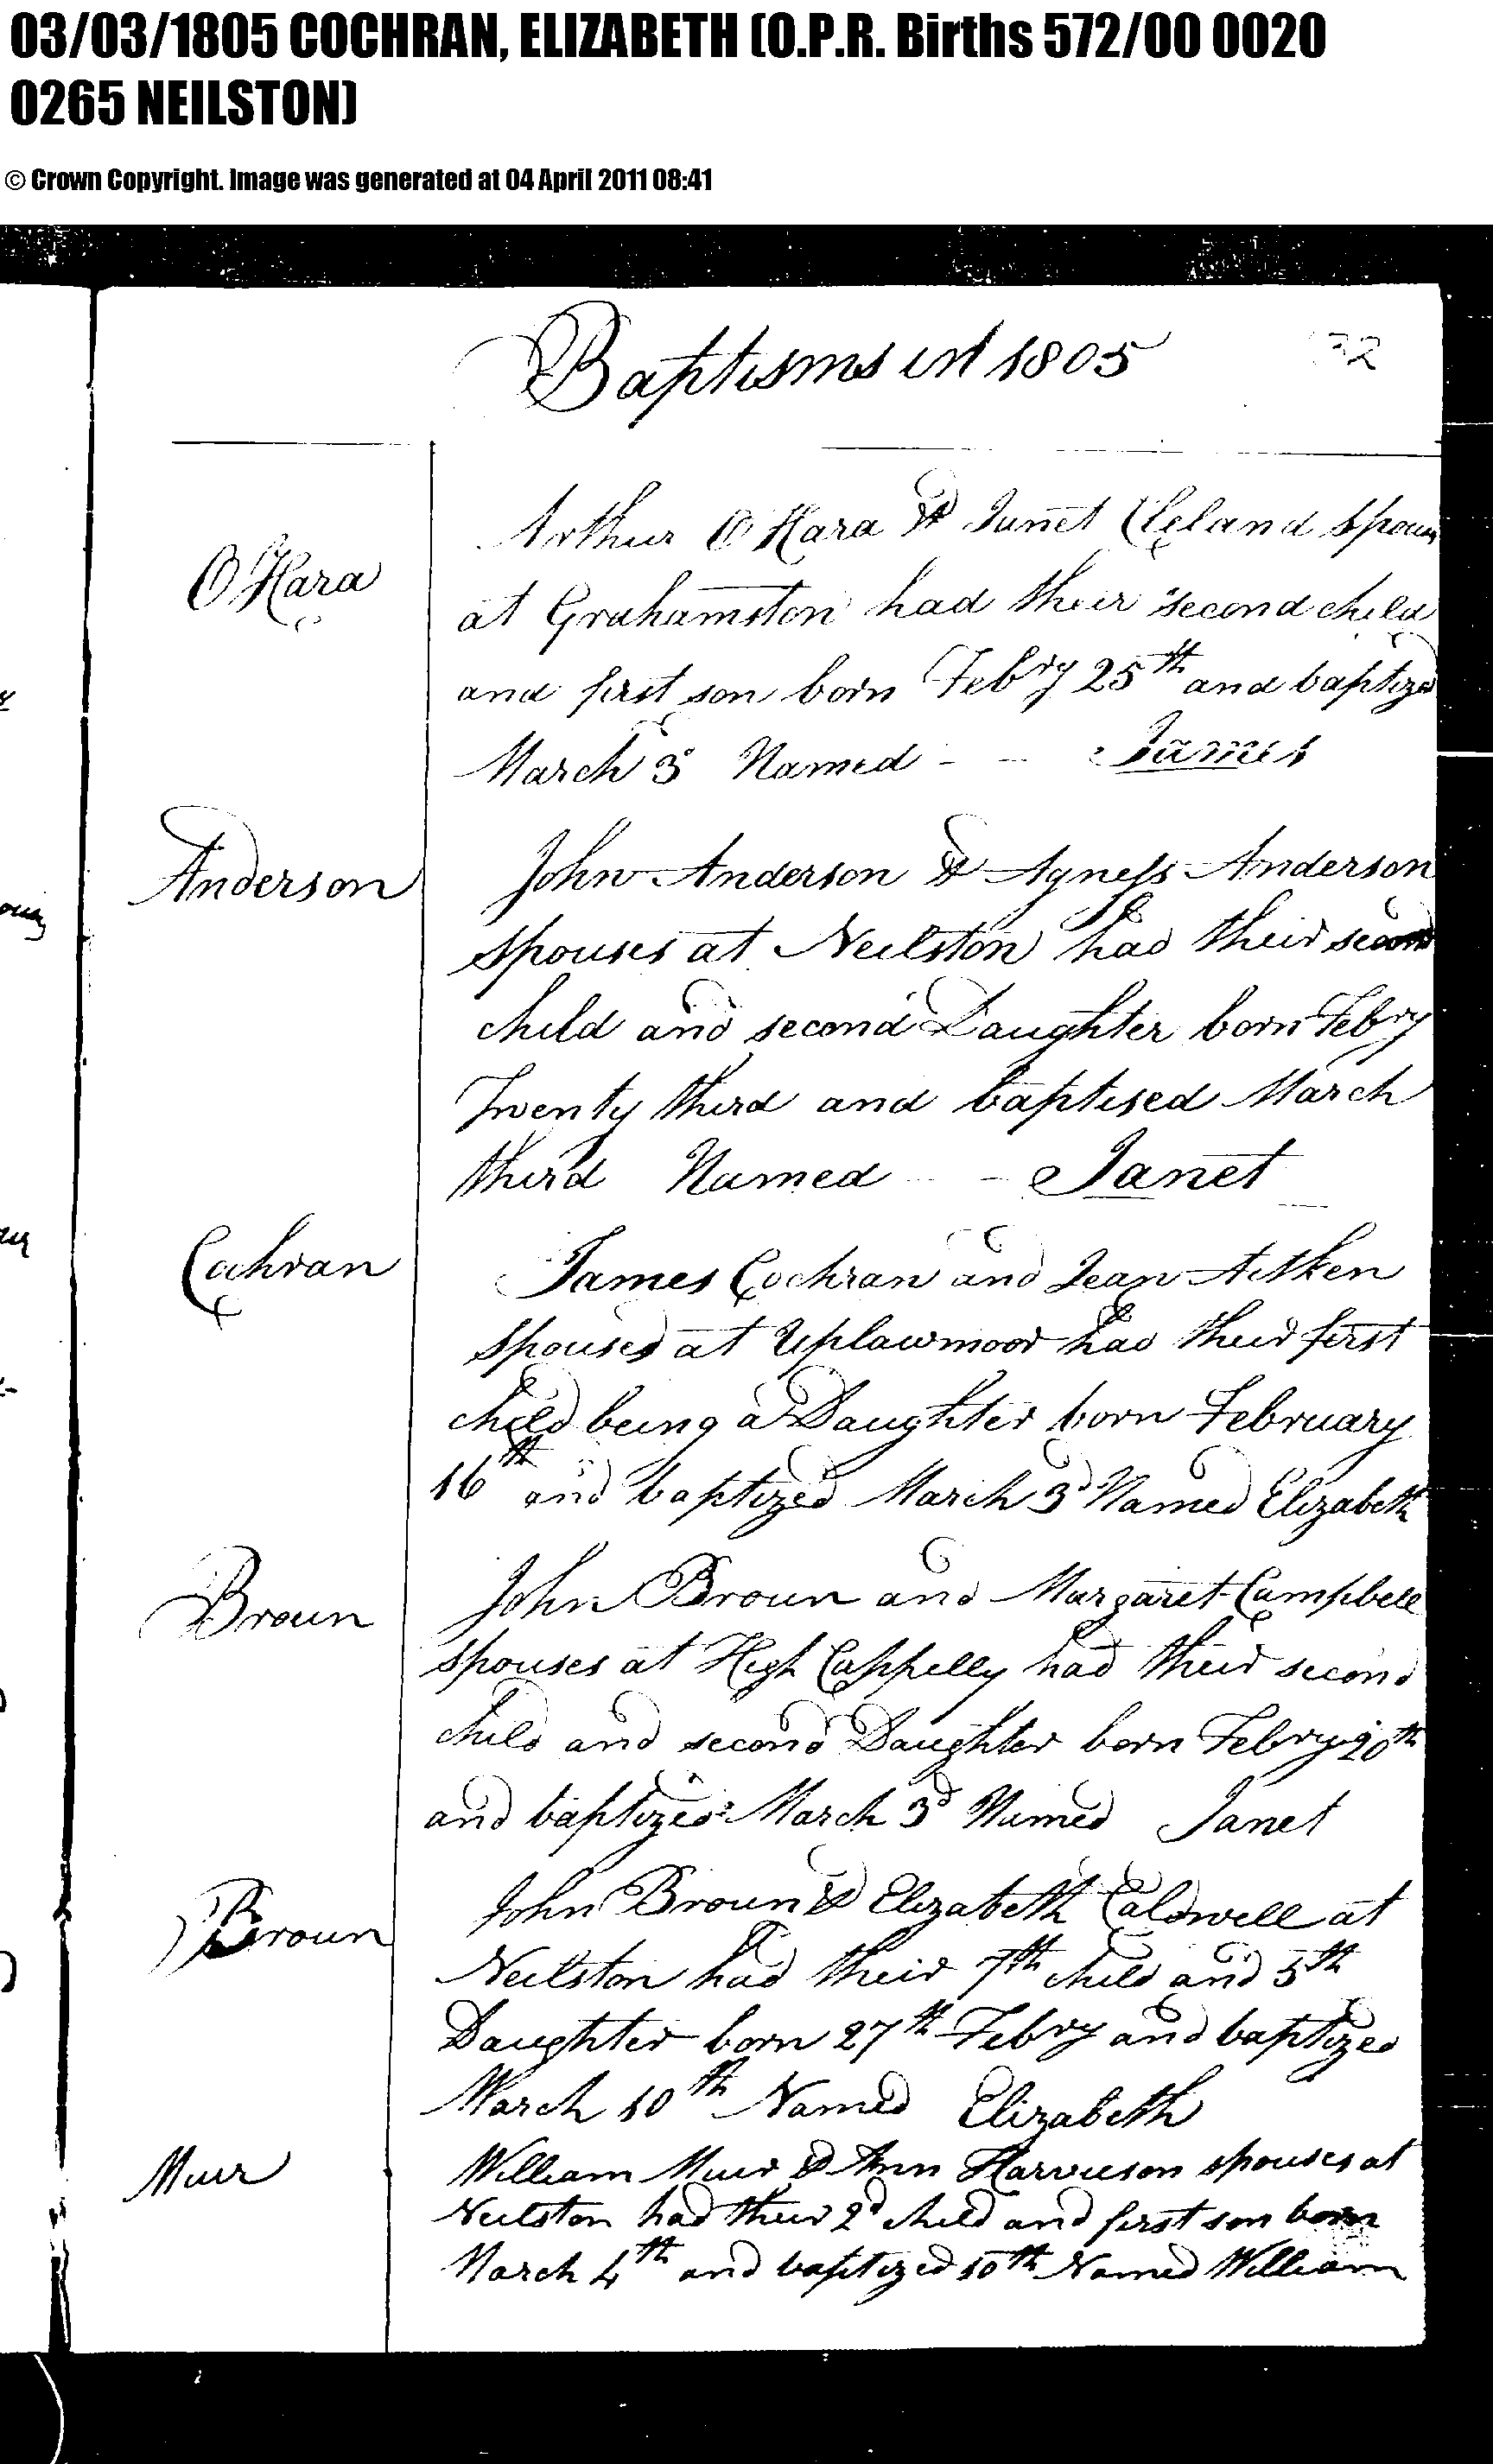 03/03/1805 COCHRAN, ELIZABETH (O.P.R. Births 572/00 0020
0265 NEILSTON)
© Crown Copyright. Image was generated at 04 April 2011 08:41
Baptisms in 1805
32
O'Hara
Arthur O'Hara & Janet Cleland Spouses
at Grahamston had their second child
and first son born Febry 25th and baptized
March 3d Named - - James
Anderson
John Anderson & Agness Anderson
Spouses at Neilston had their second
child and second Daughter born Febry
Twenty third and baptised March
third Named - - Janet
Cochran
James Cochran and Jean Aitken
Spouses at Uplawmoor had their first
child being a Daughter born February
16th and baptized March 3d Named Elizabeth
Broun
John Broun and Margaret Campbell
spouses at High Cappelly had their second
child and second Daughter born Febry 20th
and baptized March 3d Named Janet
Broun
John Broun & Elizabeth Caldwell at
Neilston had their 7th child and 5th
Daughter born 27th Febry and baptized
March 10th Named Elizabeth
Muir
William Muir & Ann Harvieson spouses at
Neilston had their 2d child and first son born
March 4th and baptized 10th Named William